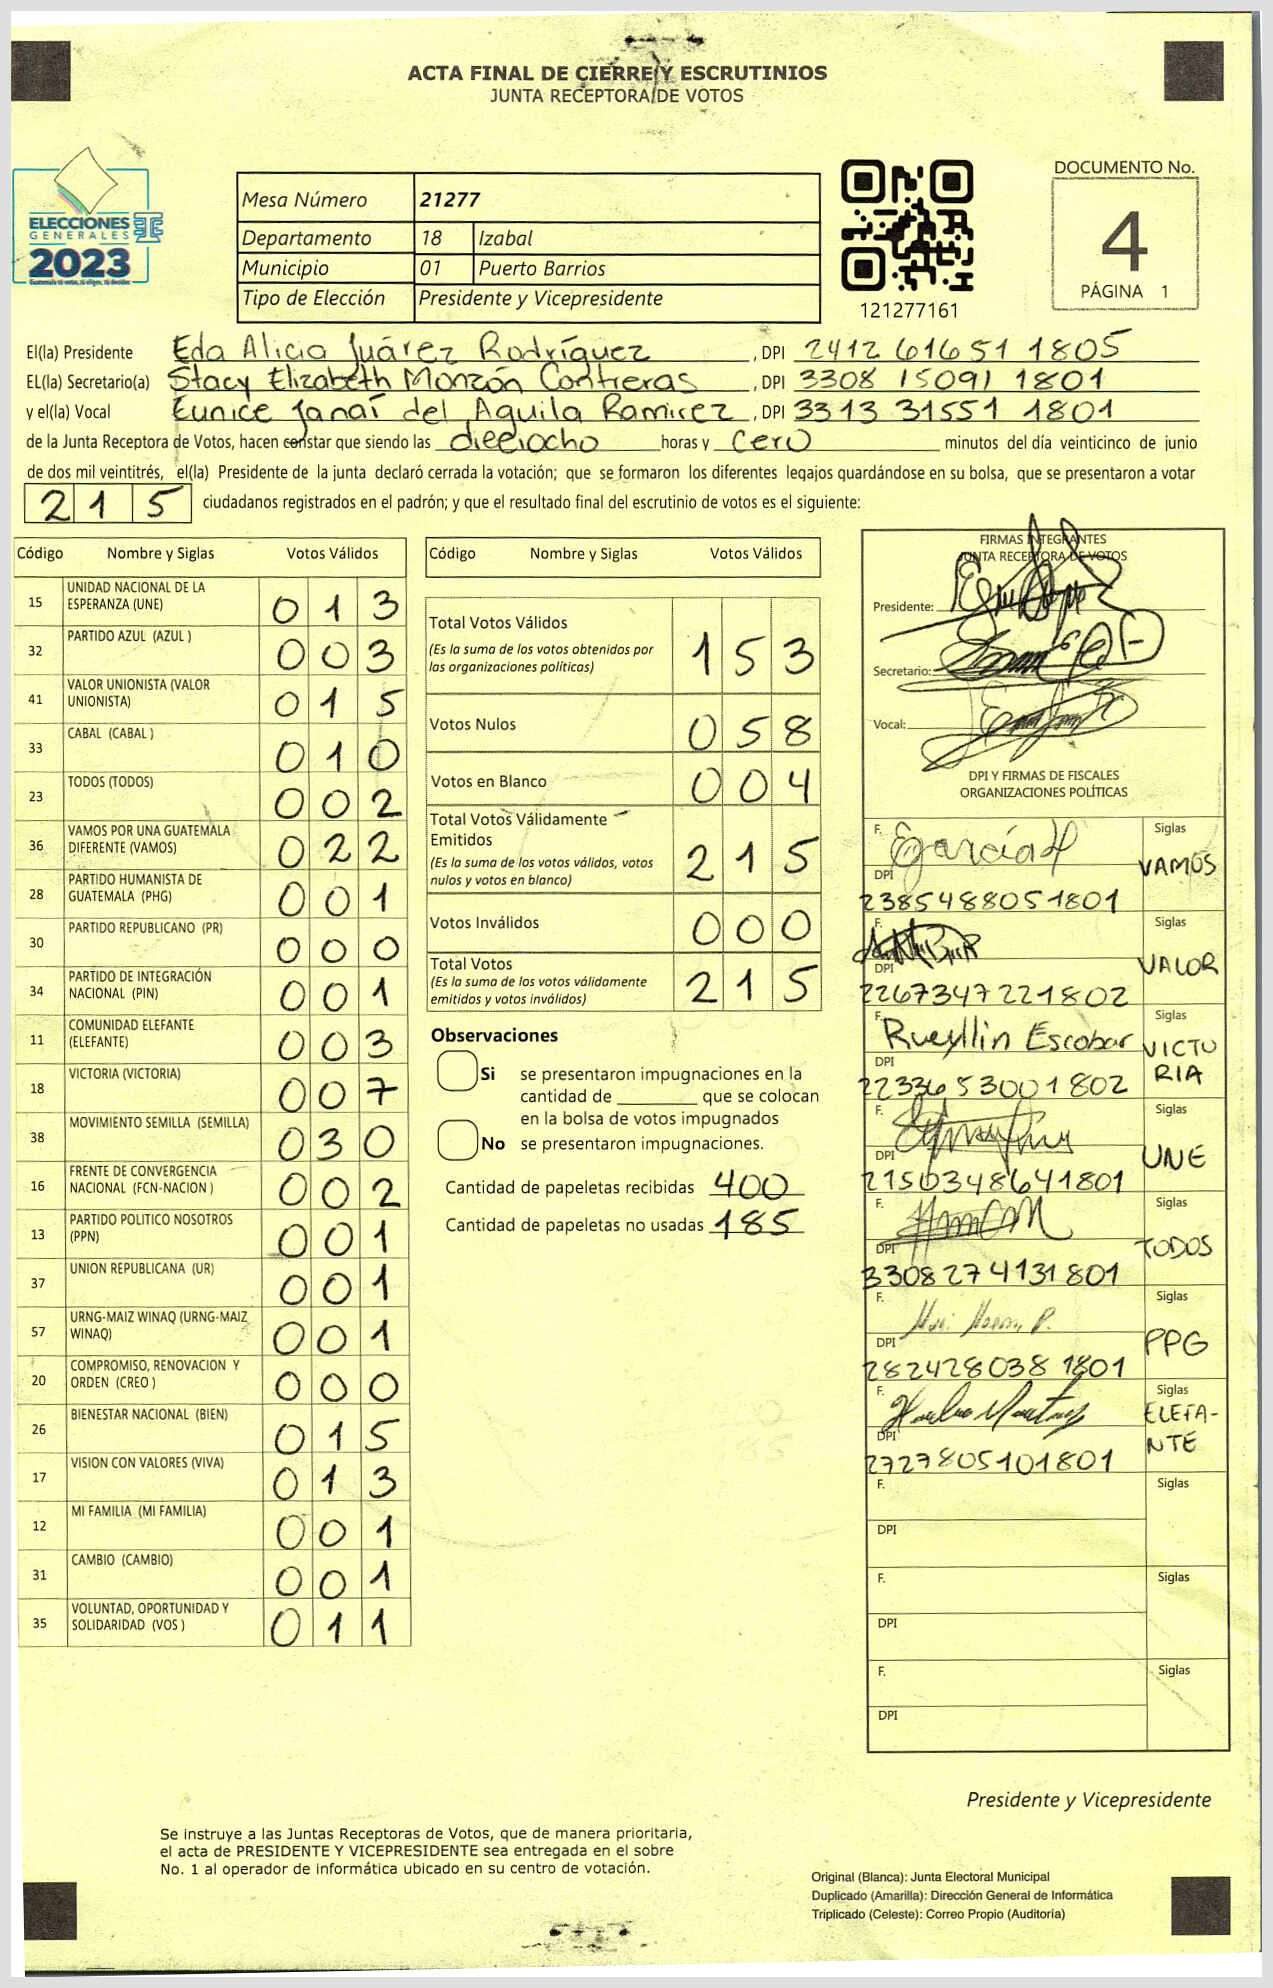 ACTA FINAL DE CIERRE Y ESCRUTINIOS
JUNTA RECEPTORA DE VOTOS
ELECCIONES
GENERALES
2023
Mesa Número 21277
Departamento 18 Izabal
Municipio 01 Puerto Barrios
Tipo de Elección Presidente y Vicepresidente
121277161
DOCUMENTO No.
4
PÁGINA 1
El(la) Presidente Eda Alicia Juárez Rodríguez , DPI 2412 61651 1805
EL(la) Secretario(a) Stacy Elizabeth Monzón Contreras , DPI 3308 15091 1801
y el(la) Vocal Eunice Janaí del Aguila Ramirez , DPI 3313 31551 1801
de la Junta Receptora de Votos, hacen constar que siendo las dieciocho horas y cero minutos del día veinticinco de junio
de dos mil veintitrés, el(la) Presidente de la junta declaró cerrada la votación; que se formaron los diferentes legajos quardándose en su bolsa, que se presentaron a votar
215 ciudadanos registrados en el padrón; y que el resultado final del escrutinio de votos es el siguiente:
Código Nombre y Siglas Votos Válidos
15 UNIDAD NACIONAL DE LA ESPERANZA (UNE) 013
32 PARTIDO AZUL (AZUL ) 003
41 VALOR UNIONISTA (VALOR UNIONISTA) 015
33 CABAL (CABAL ) 010
23 TODOS (TODOS) 002
36 VAMOS POR UNA GUATEMALA DIFERENTE (VAMOS) 022
28 PARTIDO HUMANISTA DE GUATEMALA (PHG) 001
30 PARTIDO REPUBLICANO (PR) 000
34 PARTIDO DE INTEGRACIÓN NACIONAL (PIN) 001
11 COMUNIDAD ELEFANTE (ELEFANTE) 003
18 VICTORIA (VICTORIA) 007
38 MOVIMIENTO SEMILLA (SEMILLA) 030
16 FRENTE DE CONVERGENCIA NACIONAL (FCN-NACION ) 002
13 PARTIDO POLITICO NOSOTROS (PPN) 001
37 UNION REPUBLICANA (UR) 001
57 URNG-MAIZ WINAQ (URNG-MAIZ WINAQ) 001
20 COMPROMISO, RENOVACION Y ORDEN (CREO ) 000
26 BIENESTAR NACIONAL (BIEN) 015
17 VISION CON VALORES (VIVA) 013
12 MI FAMILIA (MI FAMILIA) 001
31 CAMBIO (CAMBIO) 001
35 VOLUNTAD, OPORTUNIDAD Y SOLIDARIDAD (VOS ) 011
Código Nombre y Siglas Votos Válidos
Total Votos Válidos 153
(Es la suma de los votos obtenidos por
las organizaciones políticas)
Votos Nulos 058
Votos en Blanco 004
Total Votos Válidamente
Emitidos 215
(Es la suma de los votos válidos, votos
nulos y votos en blanco)
Votos Inválidos 000
Total Votos 215
(Es la suma de los votos válidamente
emitidos y votos inválidos)
Observaciones
Si se presentaron impugnaciones en la
cantidad de ________ que se colocan
en la bolsa de votos impugnados
No se presentaron impugnaciones.
Cantidad de papeletas recibidas 400
Cantidad de papeletas no usadas 185
FIRMAS INTEGRANTES
JUNTA RECEPTORA DE VOTOS
Presidente:
Secretario:
Vocal:
DPI Y FIRMAS DE FISCALES
ORGANIZACIONES POLÍTICAS
F. Egarcía Siglas
DPI VAMOS
2385488051801
F. Siglas
DPI VALOR
2267347221802
F. Rueyllin Escobar Siglas
DPI VICTORIA
2233653001802
F. Siglas
DPI UNE
2150348641801
F. Siglas
DPI TODOS
3308274131801
F. Siglas
DPI PPG
2824280381801
F. Siglas
DPI ELEFA-
NTE
2727805101801
F. Siglas
DPI
F. Siglas
DPI
F. Siglas
DPI
Presidente y Vicepresidente
Se instruye a las Juntas Receptoras de Votos, que de manera prioritaria,
el acta de PRESIDENTE Y VICEPRESIDENTE sea entregada en el sobre
No. 1 al operador de informática ubicado en su centro de votación.
Original (Blanca): Junta Electoral Municipal
Duplicado (Amarilla): Dirección General de Informática
Triplicado (Celeste): Correo Propio (Auditoría)